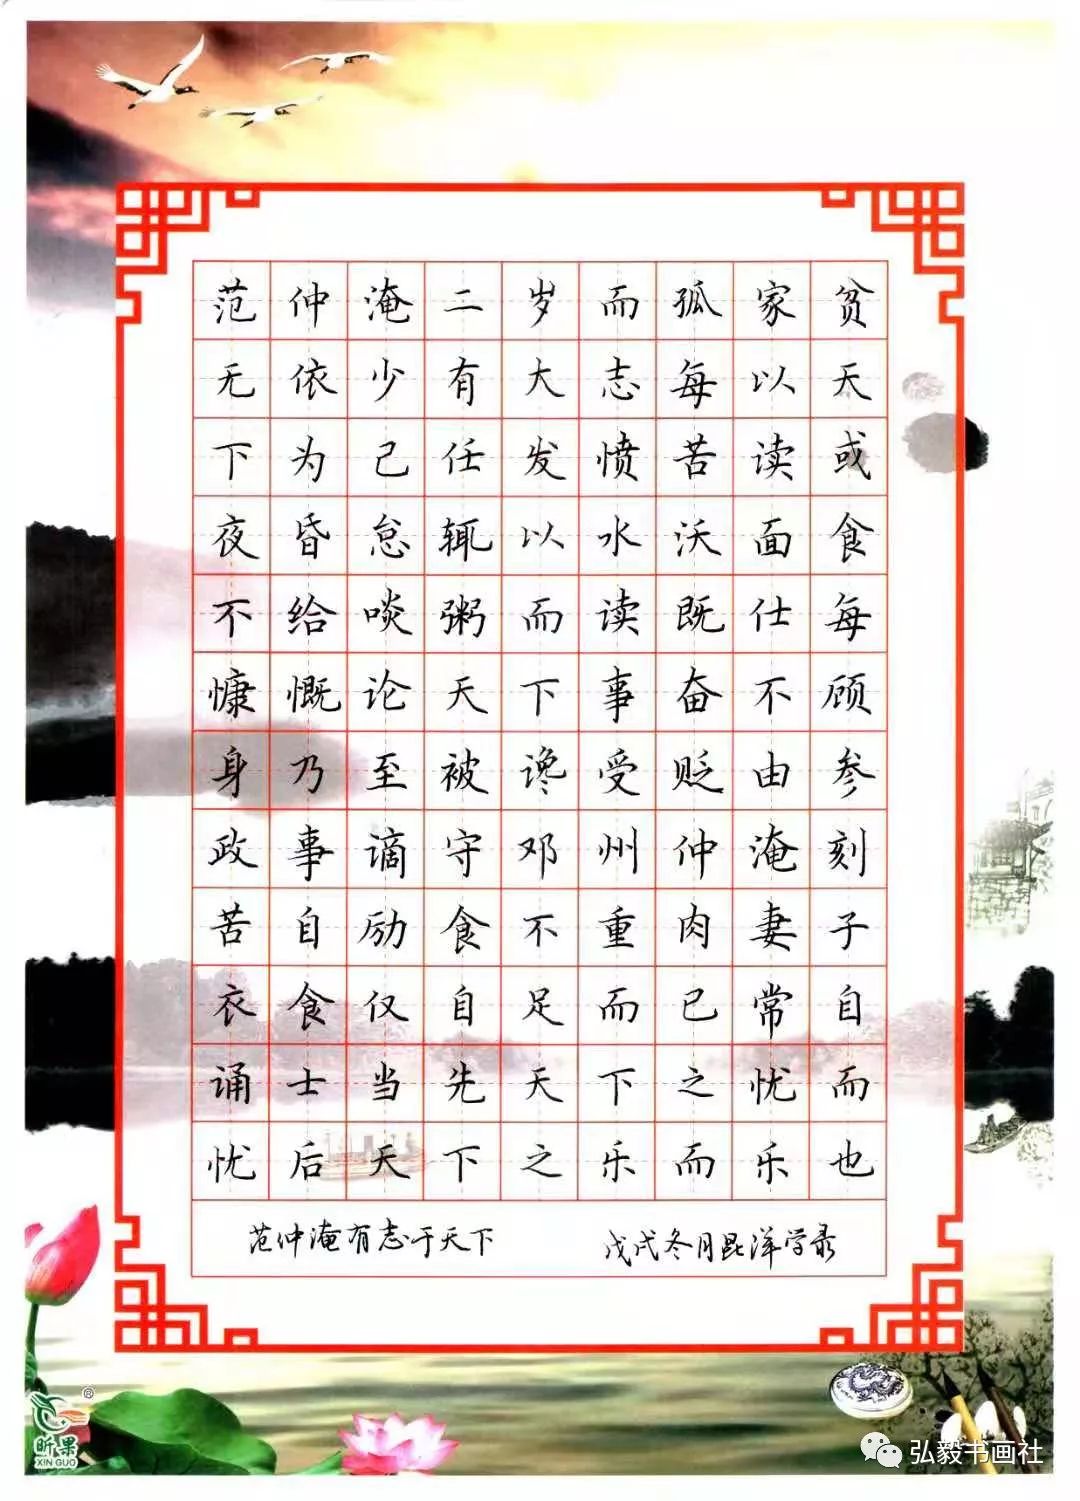 范仲淹二岁而孤家贫
无依少有大志每以天
下为己任发愤苦读或
夜昏怠辄以水沃面食
不给啖粥而读既仕每
慷慨论天下事奋不顾
身乃至被谗受贬由参
政事谪守邓州仲淹刻
苦自励食不重肉妻子
衣食仅自足而已常自
诵士当先天下之忧而
忧后天下之乐而乐也
范仲淹有志于天下 戊戌冬月昆洋学录
®
昕果
XIN GUO
弘毅书画社